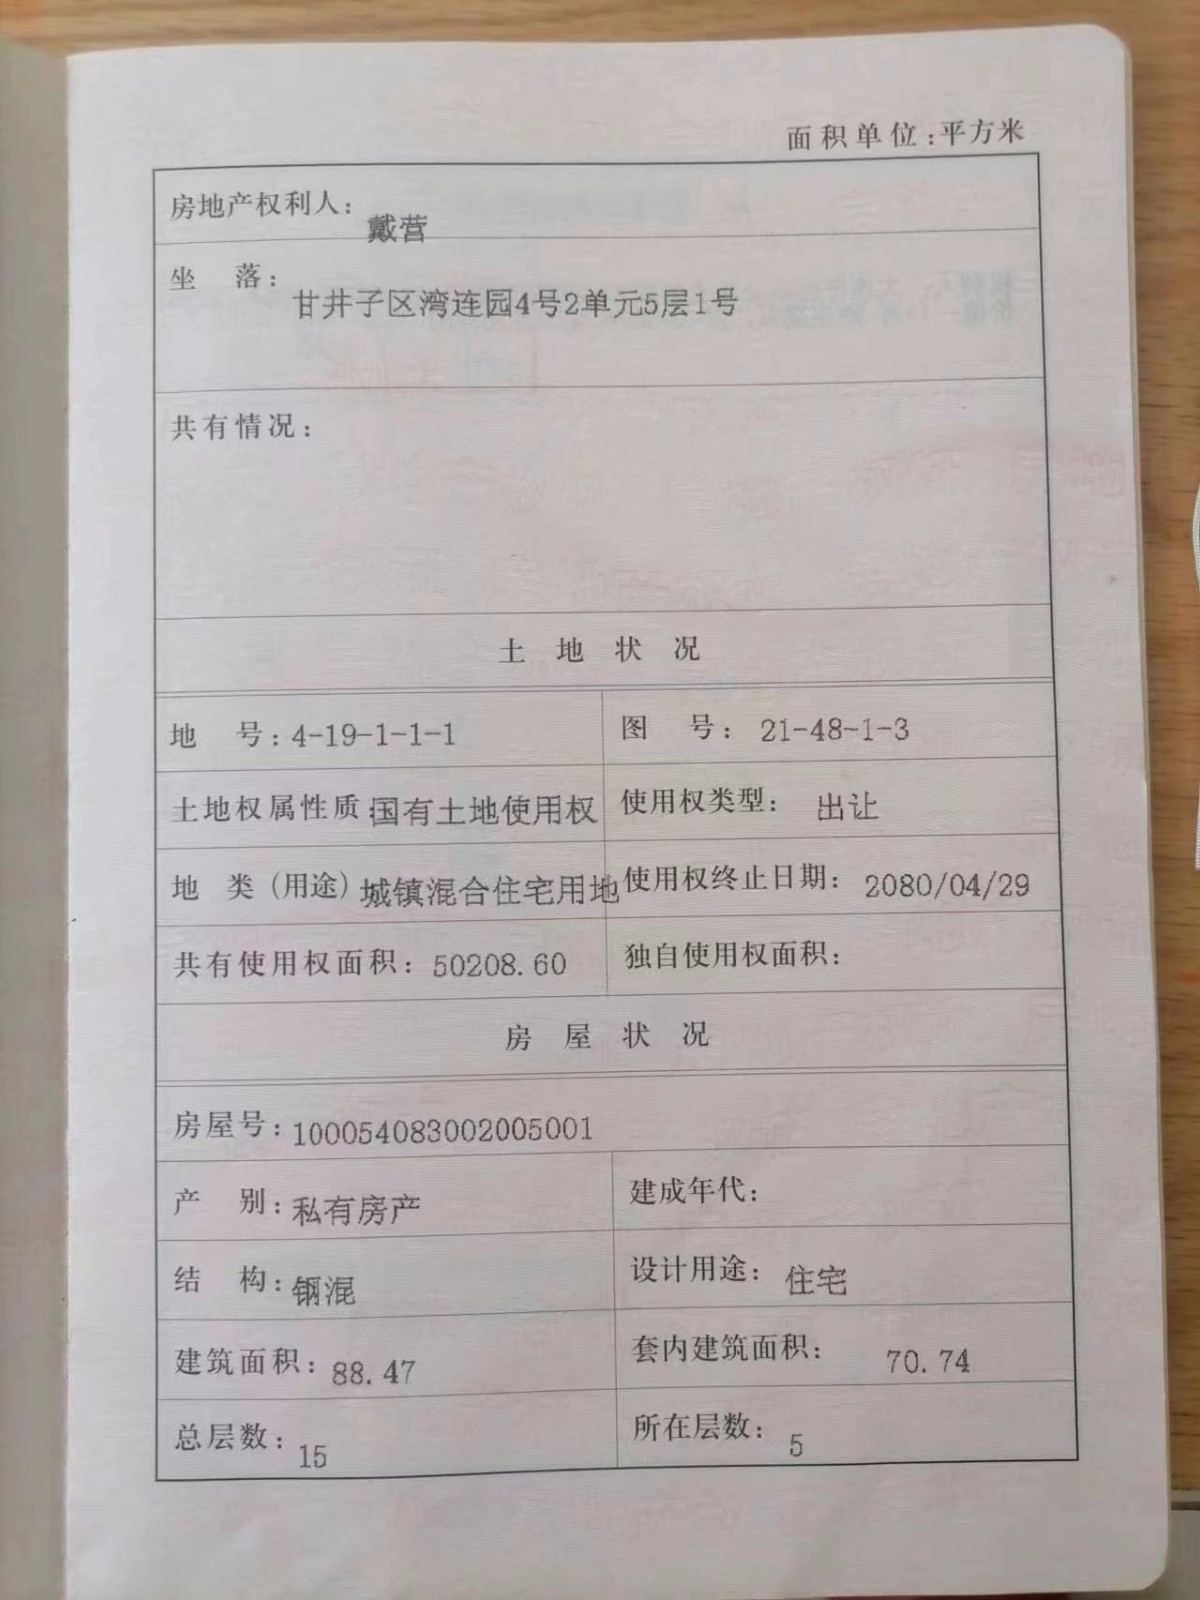 面积单位:平方米
房地产权利人: 戴营
坐 落: 甘井子区湾连园4号2单元5层1号
共有情况:
土 地 状 况
地 号: 4-19-1-1-1 图 号: 21-48-1-3
土地权属性质:国有土地使用权 使用权类型: 出让
地 类 (用途) 城镇混合住宅用地 使用权终止日期: 2080/04/29
共有使用权面积: 50208.60 独自使用权面积:
房 屋 状 况
房屋号: 100054083002005001
产 别: 私有房产 建成年代:
结 构: 钢混 设计用途: 住宅
建筑面积: 88.47 套内建筑面积: 70.74
总层数: 15 所在层数: 5